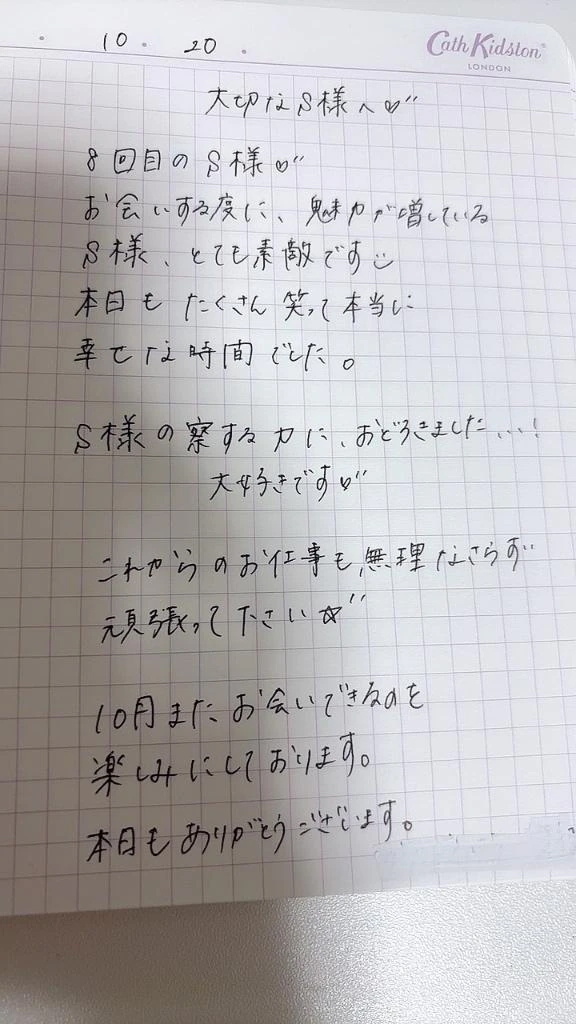 10・20・
Cath Kidston
LONDON
大切なS様へ♡"
8回目のS様♡"
お会いする度に、魅力が増している
S様、とても素敵です
本日もたくさん笑って本当に
幸せな時間でした。
S様の察する力に、おどろきました...!
大好きです♡"
これからのお仕事も、無理なさらず
頑張って下さい☆"
10月またお会いできるのを
楽しみにしております。
本日もありがとうございます。